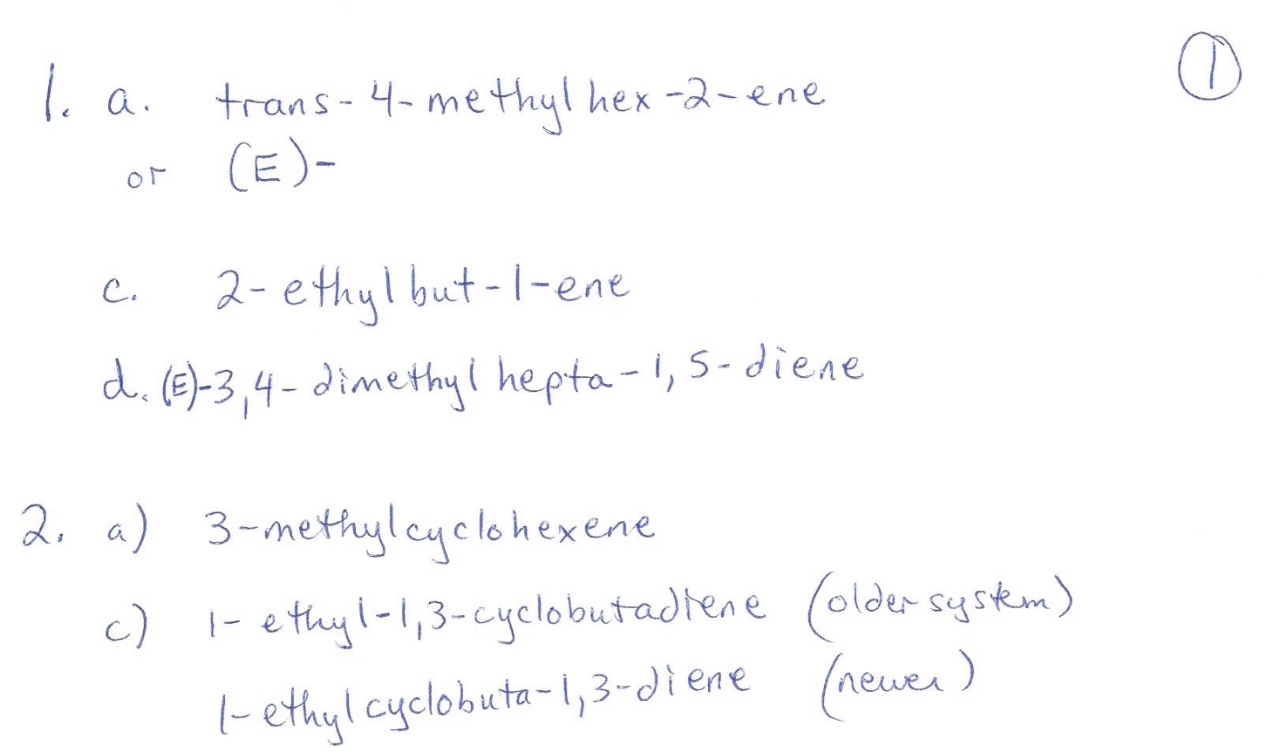 ①
1. a. trans-4-methylhex-2-ene
or (E)-
c. 2-ethylbut-1-ene
d. (E)-3,4-dimethylhepta-1,5-diene
2. a) 3-methylcyclohexene
c) 1-ethyl-1,3-cyclobutadiene (older system)
1-ethylcyclobuta-1,3-diene (newer)